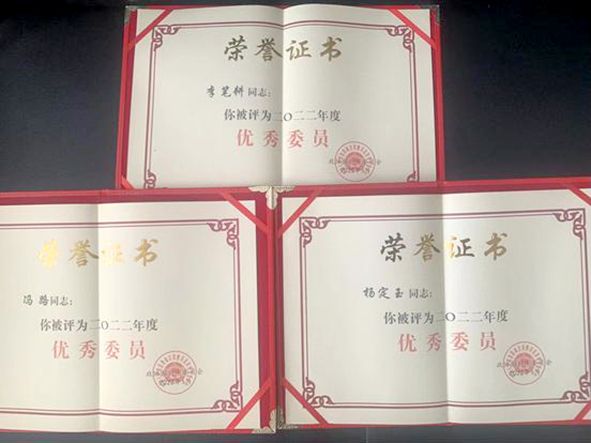 荣誉证书
李笔耕同志：
你被评为二〇二二年度
优秀委员
荣誉证书
冯路同志：
你被评为二〇二二年度
优秀委员
荣誉证书
杨定玉同志：
你被评为二〇二二年度
优秀委员